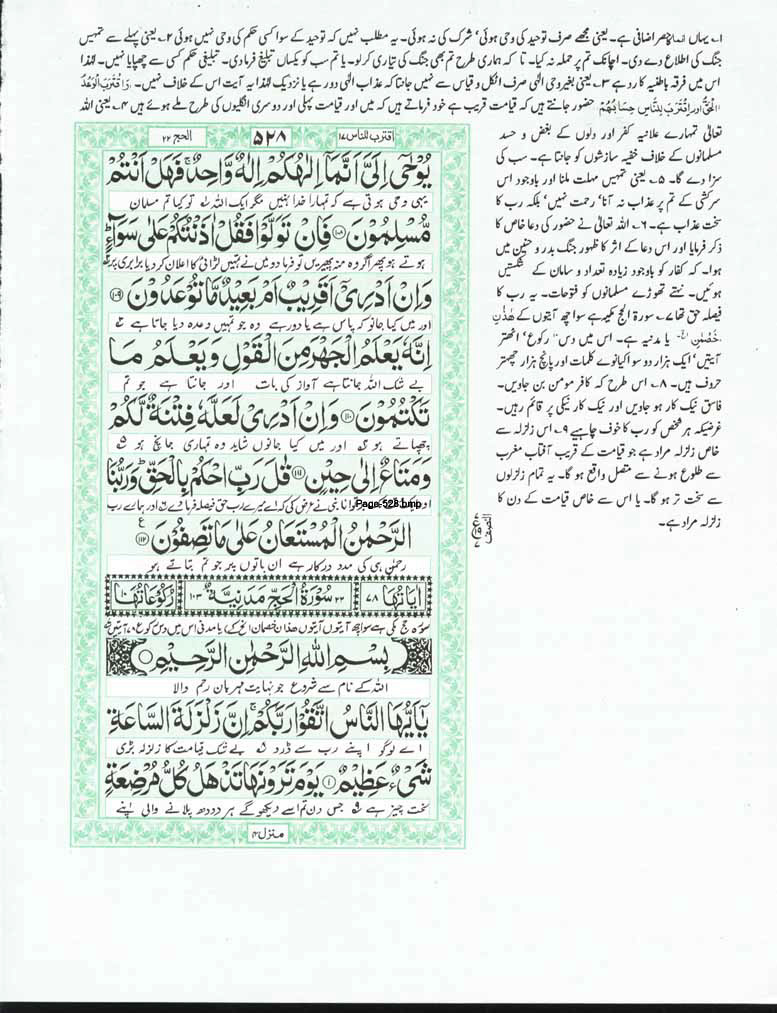 ۱؎ یہاں انما حصر اضافی ہے۔ یعنی مجھے صرف توحید کی وحی ہوئی‘ شرک کی نہ ہوئی۔ یہ مطلب نہیں کہ توحید کے سوا کسی حکم کی وحی نہیں ہوئی ۲؎ یعنی پہلے سے تمہیں
جنگ کی اطلاع دے دی۔ اچانک تم پر حملہ نہ کیا۔ تا کہ ہماری طرح تم بھی جنگ کی تیاری کر لو۔ یا تم سب کو یکساں تبلیغ فرما دی۔ تبلیغی حکم کسی سے چھپایا نہیں۔ لہٰذا
اس میں فرقہ باطنیہ کا رد ہے ۳؎ یعنی بغیر وحی الٰہی صرف اٹکل و قیاس سے نہیں جانتا کہ عذاب الٰہی دور ہے یا نزدیک لہٰذا یہ آیت اس کے خلاف نہیں۔ وَاقْتَرَبَ الْوَعْدُ
الْحَقُّ اور اِقْتَرَبَ لِلنَّاسِ حِسَابُهُمْ حضور جانتے ہیں کہ قیامت قریب ہے خود فرماتے ہیں کہ میں اور قیامت پہلی اور دوسری انگلیوں کی طرح ملے ہوئے ہیں ۴؎ یعنی اللہ
تعالٰی تمہارے علانیہ کفر اور دلوں کے بغض و حسد
مسلمانوں کے خلاف خفیہ سازشوں کو جانتا ہے۔ سب کی
سزا دے گا۔ ۵؎ یعنی تمہیں مہلت ملنا اور باوجود اس
سرکشی کے تم پر عذاب نہ آنا‘ رحمت نہیں‘ بلکہ رب کا
سخت عذاب ہے۔ ۶؎ اللہ تعالٰی نے حضور کی دعا خاص کا
ذکر فرمایا اور اس دعا کے اثر کا ظہور جنگ بدر و حنین میں
ہوا۔ کہ کفار کو باوجود زیادہ تعداد و سامان کے شکستیں
ہوئیں۔ نہتے تھوڑے مسلمانوں کو فتوحات۔ یہ رب کا
فیصلہ حق تھا ۷؎ سورۃ الحج مکیہ ہے سوا چھ آیتوں کے هٰذٰنِ
خَصْمٰنِ الخ۔ یا مدنیہ ہے۔ اس میں دس رکوع‘ اٹھتر
آیتیں‘ ایک ہزار دو سو اکیانوے کلمات اور پانچ ہزار پچھتر
حروف ہیں۔ ۸؎ اس طرح کہ کافر مومن بن جاویں۔
فاسق نیک کار ہو جاویں اور نیک کار نیکی پر قائم رہیں۔
غرضیکہ ہر شخص کو رب کا خوف چاہیے ۹؎ اس زلزلہ سے
خاص زلزلہ مراد ہے جو قیامت کے قریب آفتاب مغرب
سے طلوع ہونے سے متصل واقع ہو گا۔ یہ تمام زلزلوں
سے سخت تر ہو گا۔ یا اس سے خاص قیامت کے دن کا
زلزلہ مراد ہے۔
اقترب للناس ۱۷ ۵۲۸ الحج ۲۲
يُوْحٰٓى اِلَيَّ اَنَّمَاۤ اِلٰهُكُمْ اِلٰهٌ وَّاحِدٌ ۚ فَهَلْ اَنْتُمْ
یہی وحی ہوتی ہے کہ تمہارا خدا نہیں مگر ایک اللہ تو کیا تم مسلمان
مُّسْلِمُوْنَ ﴿۱۰۸﴾ فَاِنْ تَوَلَّوْا فَقُلْ اٰذَنْتُكُمْ عَلٰى سَوَآءٍ ؕ
ہوتے ہو پھر اگر وہ منہ پھیریں تو فرما دو میں نے تمہیں لڑائی کا اعلان کر دیا برابری پر
وَ اِنْ اَدْرِيْۤ اَقَرِيْبٌ اَمْ بَعِيْدٌ مَّا تُوْعَدُوْنَ ﴿۱۰۹﴾
اور میں کیا جانوں کہ پاس ہے یا دور ہے وہ جو تمہیں وعدہ دیا جاتا ہے
اِنَّهٗ يَعْلَمُ الْجَهْرَ مِنَ الْقَوْلِ وَ يَعْلَمُ مَا
بے شک اللہ جانتا ہے آواز کی بات اور جانتا ہے جو تم
تَكْتُمُوْنَ ﴿۱۱۰﴾ وَ اِنْ اَدْرِيْ لَعَلَّهٗ فِتْنَةٌ لَّكُمْ
چھپاتے ہو اور میں کیا جانوں شاید وہ تمہاری جانچ ہو
وَ مَتَاعٌ اِلٰى حِيْنٍ ﴿۱۱۱﴾ قٰلَ رَبِّ احْكُمْ بِالْحَقِّ ؕ وَ رَبُّنَا
Page-528.bmp نبی نے عرض کی کہ اے میرے رب حق فیصلہ فرما دے اور ہمارے رب
الرَّحْمٰنُ الْمُسْتَعَانُ عَلٰى مَا تَصِفُوْنَ ﴿۱۱۲﴾
رحمٰن ہی کی مدد درکار ہے ان باتوں پر جو تم بتاتے ہو
اٰيَاتُهَا ۷۸ ۲۲ سُوْرَةُ الْحَجِّ مَدَنِيَّةٌ ۱۰۳ رُكُوْعَاتُهَا ۱۰
سورہ حج مکی ہے سوا چھ آیتوں هذان خصمان الخ کے یا مدنی اس میں دس رکوع ۷۸ آیتیں
بِسْمِ اللهِ الرَّحْمٰنِ الرَّحِيْمِ
اللہ کے نام سے شروع جو نہایت مہربان رحم والا
يٰۤاَيُّهَا النَّاسُ اتَّقُوْا رَبَّكُمْ ۚ اِنَّ زَلْزَلَةَ السَّاعَةِ
اے لوگو اپنے رب سے ڈرو بے شک قیامت کا زلزلہ بڑی
شَيْءٌ عَظِيْمٌ ﴿۱﴾ يَوْمَ تَرَوْنَهَا تَذْهَلُ كُلُّ مُرْضِعَةٍ
سخت چیز ہے جس دن تم اسے دیکھو گے ہر دودھ پلانے والی اپنے
منزل ۴